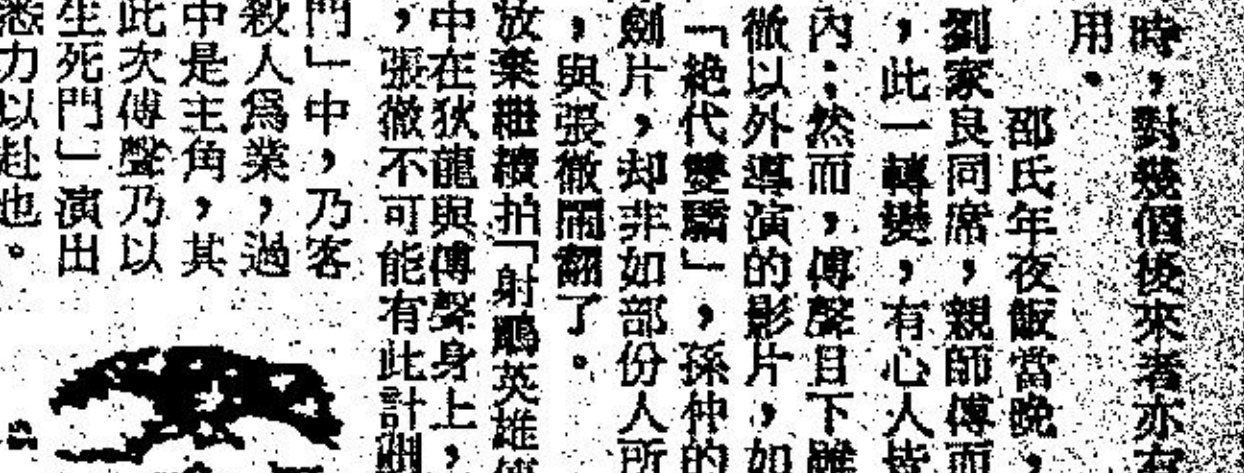 時，對幾個後來者亦有
用。
邵氏年夜飯當晚，
劉家良同席，親師傅而
，此一轉變，有心人皆
內；然而，傅聲且下雖
徹以外導演的影片，如
「絕代雙驕」，孫仲的
劍片，却非如部份人所
，與張徹鬧翻了。
放棄繼續拍「射鵰英雄傳
中在狄龍與傅聲身上，
，張徹不可能有此計劃
門」中，乃客
殺人爲業，過
中是主角，其
此次傅聲乃以
生死門」演出
悉力以赴也。